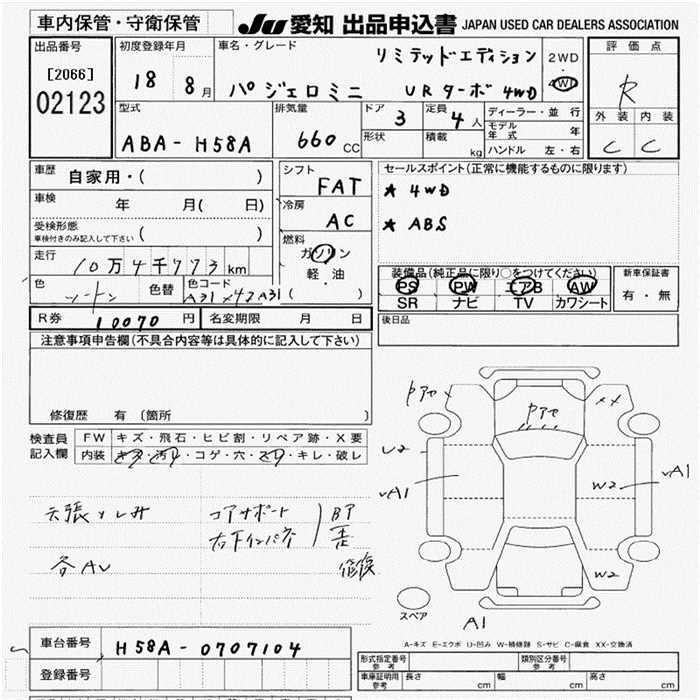 車内保管・守衛保管
JU 愛知 出品申込書 JAPAN USED CAR DEALERS ASSOCIATION
出品番号
[2066]
02123
初度登録年月
18 8月
車名・グレード
リミテッドエディション
パジェロミニ URターボ 4WD
2WD
4WD
評価点
R
外装 内装
C C
型式
ABA-H58A
排気量
660 CC
ドア
3
形状
定員
4人
積載 kg
ディーラー・並行
モデル年式 年
ハンドル 左・右
車歴
自家用・( )
車検
年 月( 日)
受検形態
車検付きのみ記入して下さい ( )
走行
10万4千773km
色
ツートン
色替
色コード
A31×42A31( )
シフト
FAT
冷房
AC
燃料
ガソリン
軽・油
セールスポイント(正常に機能するものに限ります)
★ 4WD
★ ABS
装備品(純正品に限り○をつけてください)
PS PW エアB AW
SR ナビ TV カワシート
新車保証書
有・無
R券 10070円 名変期限 月 日
後日品
注意事項申告欄(不具合内容等は具体的に記入して下さい)
修復歴 有(箇所 )
検査員記入欄
FW キズ・飛石・ヒビ割・リペア跡・X要
内装 キズ・汚れ・コゲ・穴・スレ・キレ・破レ
天張りしみ
コアサポート
右下インパネ
各AU
修復
アセ
アセ
XX
U2
A1
W2
A1
W2
A1
スペア
A-キズ E-エクボ U-凹み W-補修跡 S-サビ C-腐食 XX-交換済
車台番号 H58A-0707104
登録番号
形式指定番号 参考
類別区分番号 参考
車庫証明用 参考 長さ cm 幅 cm 高さ cm